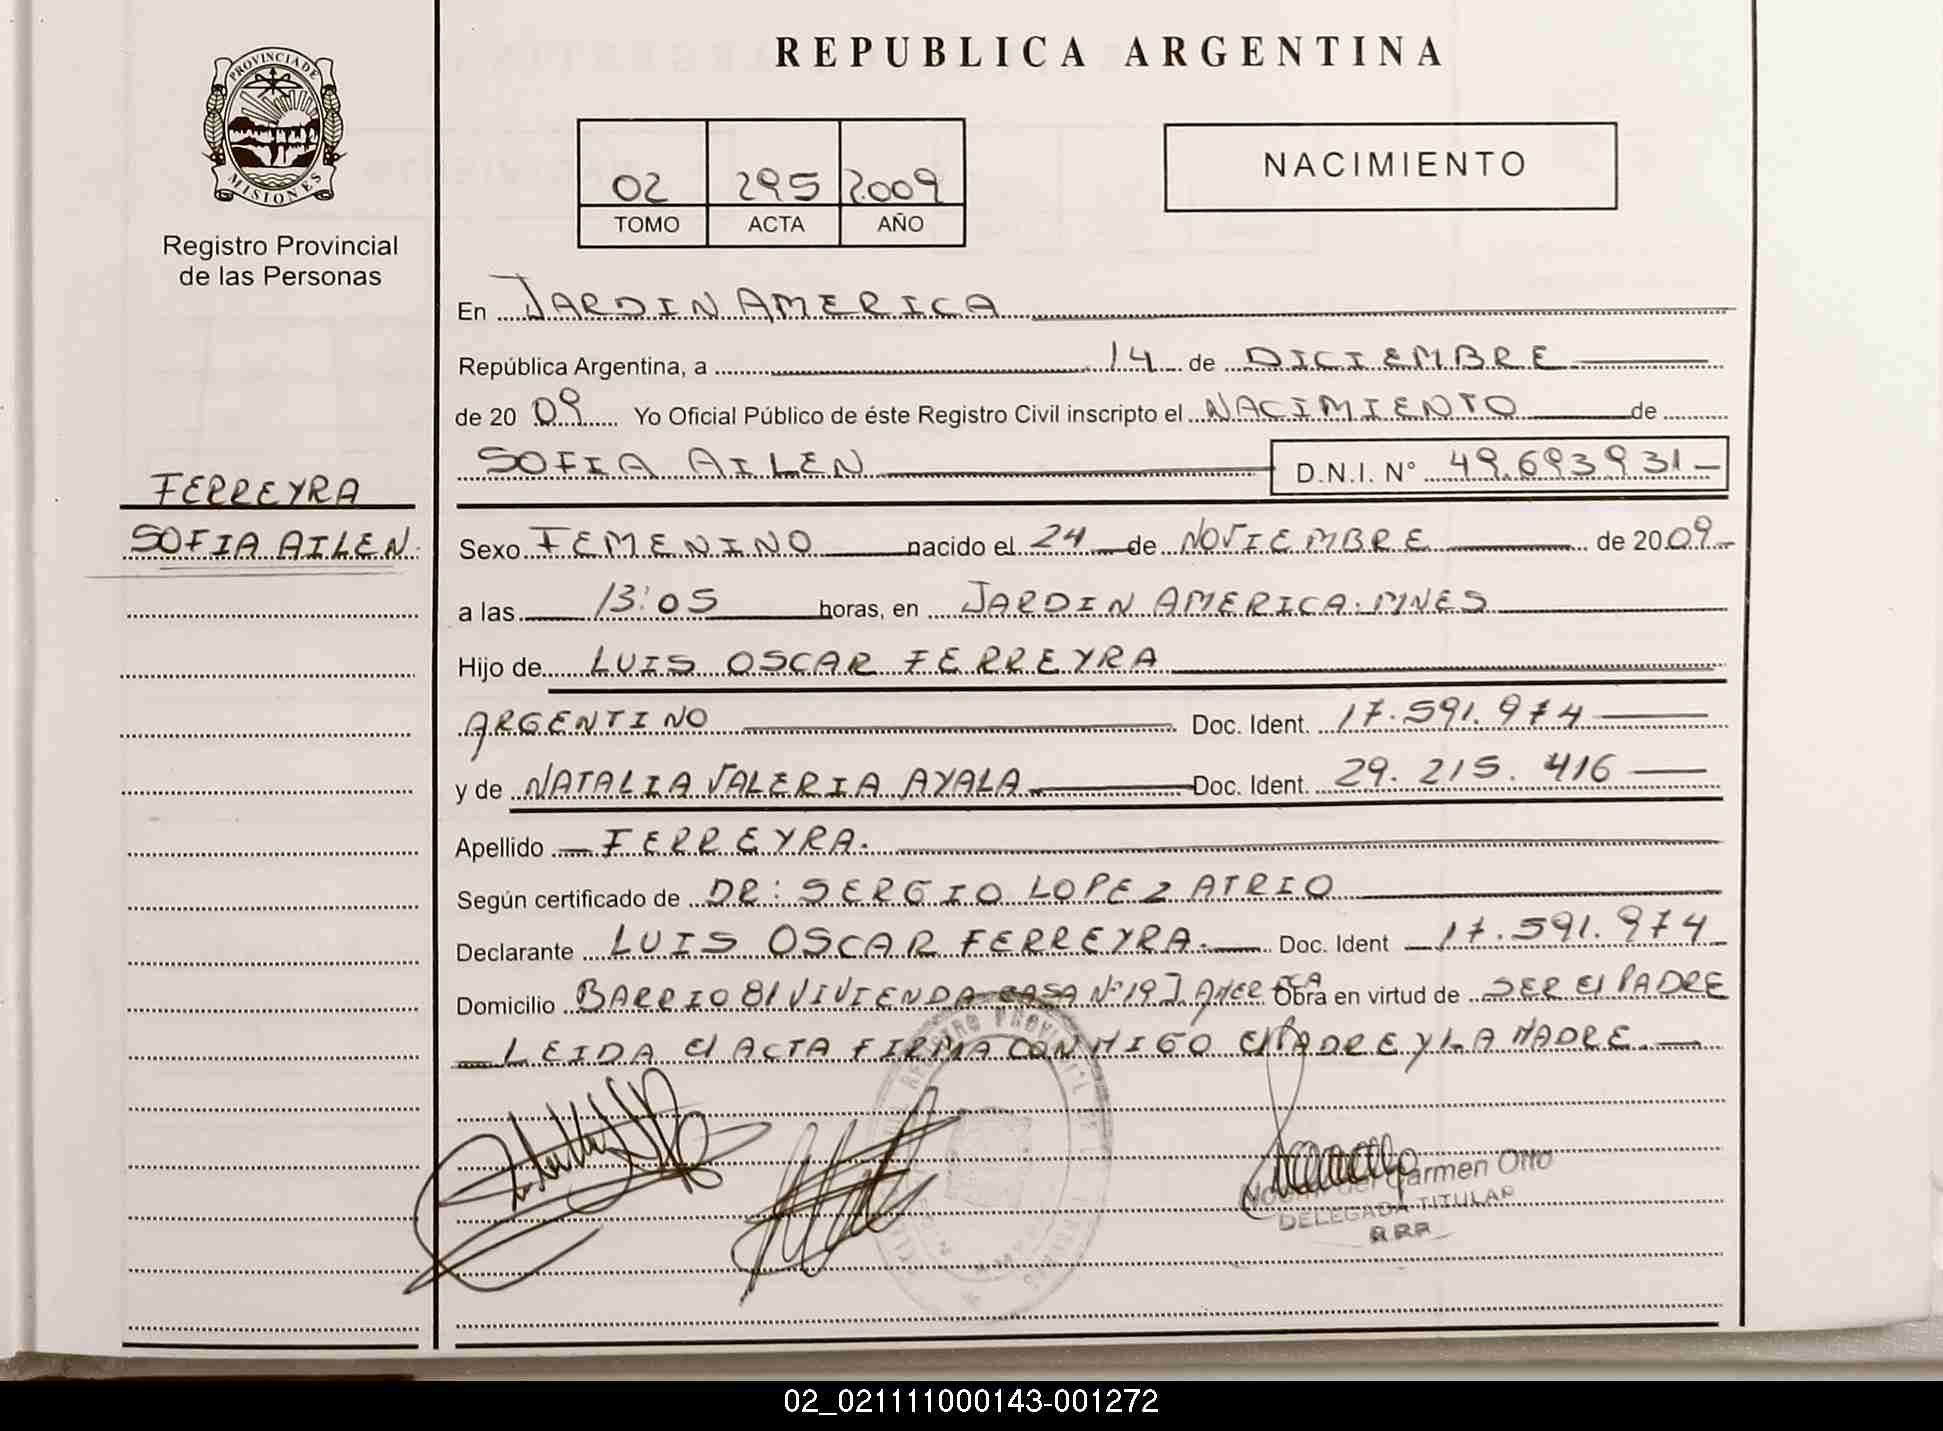 REPUBLICA ARGENTINA
PROVINCIA DE
MISIONES
Registro Provincial
de las Personas
02 295 2009
TOMO ACTA AÑO
NACIMIENTO
En JARDIN AMERICA
República Argentina, a 14 de DICIEMBRE
de 20 09 Yo Oficial Público de éste Registro Civil inscripto el NACIMIENTO de
SOFIA AILEN D.N.I. N° 49.693931
FERREYRA
SOFIA AILEN
Sexo FEMENINO nacido el 24 de NOVIEMBRE de 20 09
a las 13:05 horas, en JARDIN AMERICA. MNES
Hijo de LUIS OSCAR FERREYRA
ARGENTINO Doc. Ident. 17.591.974
y de NATALIA VALERIA AYALA Doc. Ident. 29.215.416
Apellido FERREYRA.
Según certificado de DR: SERGIO LOPEZ ATRIO
Declarante LUIS OSCAR FERREYRA. Doc. Ident 17.591.974
Domicilio BARRIO 81 VIVIENDA CASA N° 19 J. AMERICA Obra en virtud de SER El PADRE
LEIDA El ACTA FIRMA CONMIGO El PADRE Y LA MADRE.
del Carmen Otto
DELEGADA TITULAR
R.R.P.
02_021111000143-001272